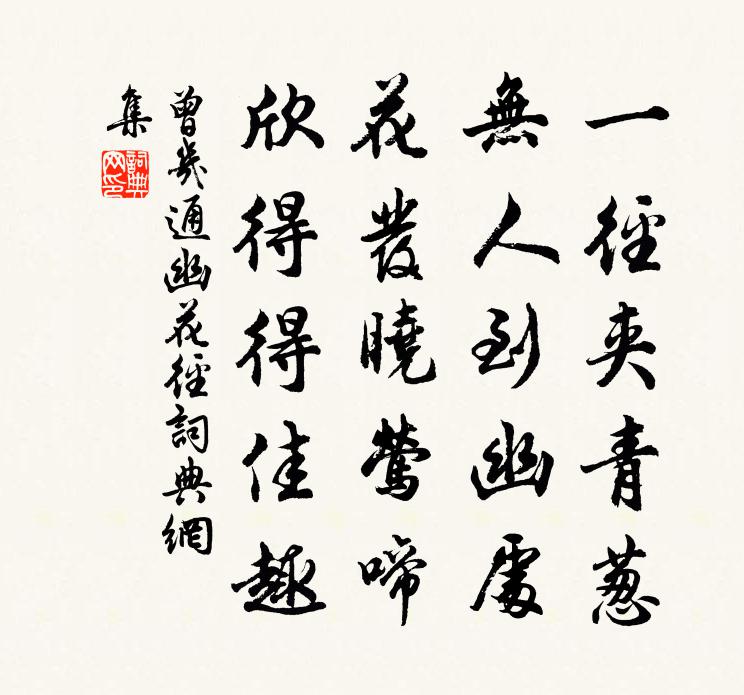 一徑夾青蔥
無人到幽處
花發曉鶯啼
欣得得佳趣
曾幾通幽花徑詞典網
集
詞典
网印